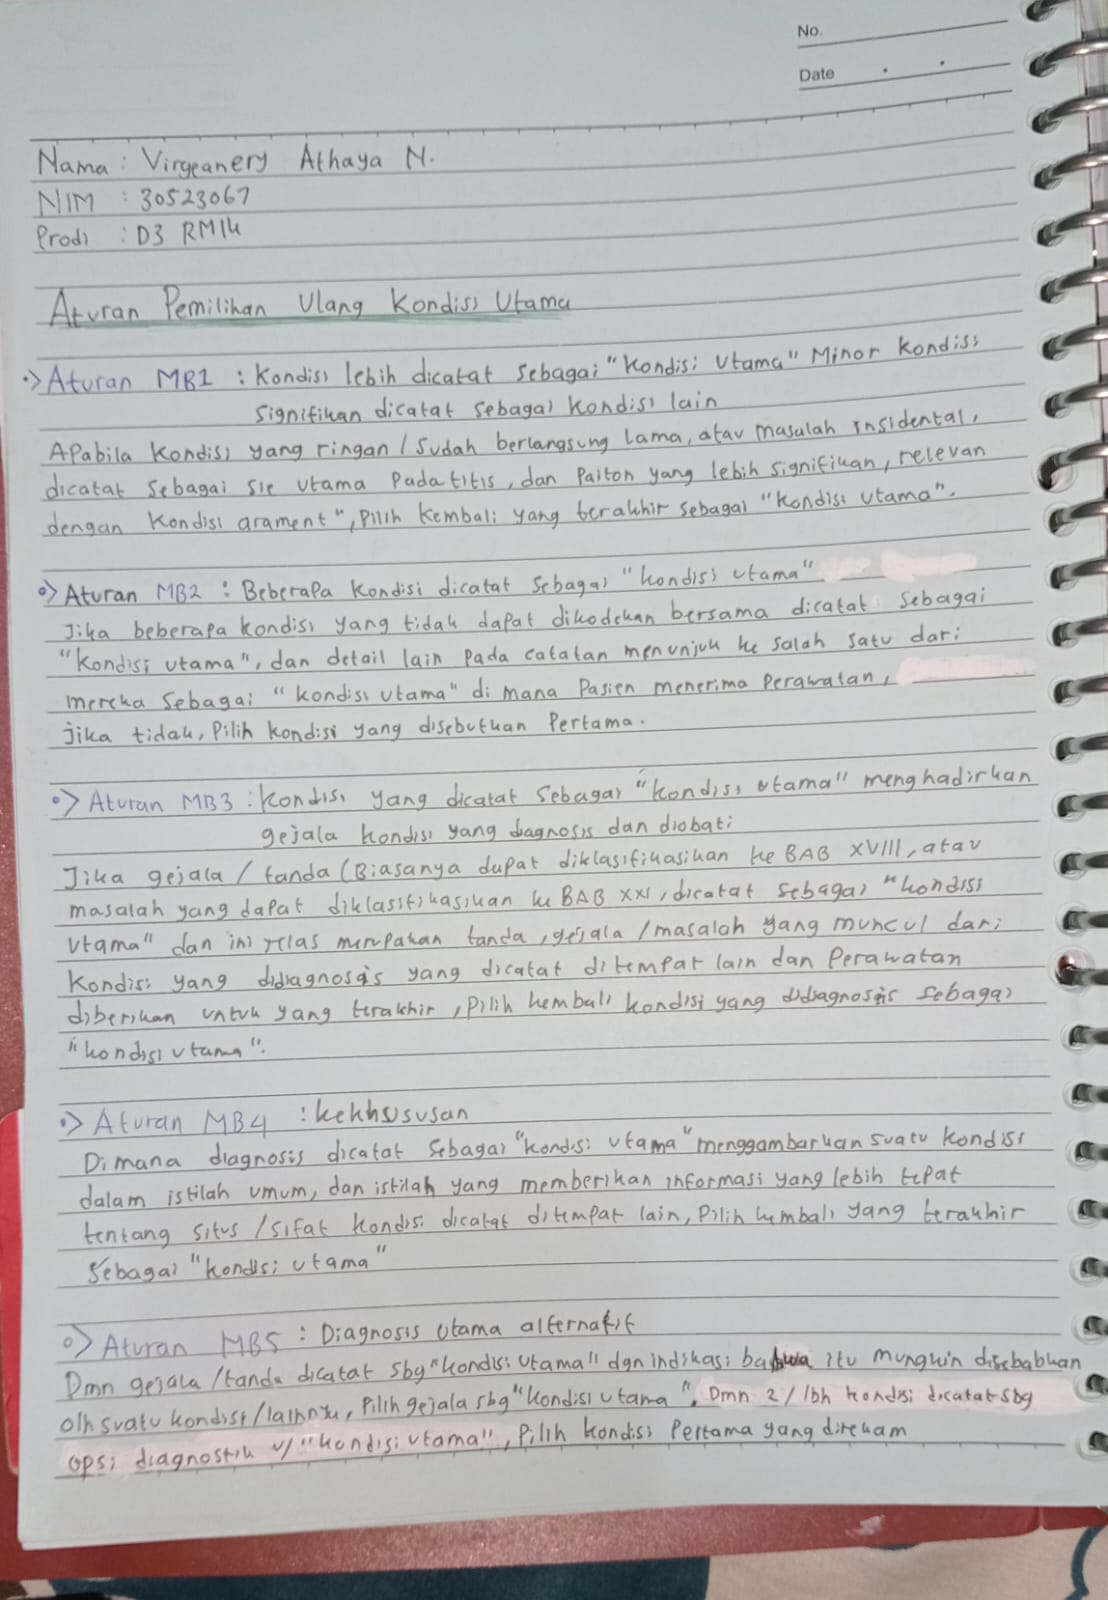 No.
Date
Nama : Virgeanery Athaya N.
NIM : 30523067
Prodi : D3 RMIK
Aturan Pemilihan Ulang Kondisi Utama
•> Aturan MB1 : Kondisi lebih dicatat sebagai "Kondisi Utama" Minor kondisi
signifikan dicatat sebagai kondisi lain
Apabila kondisi yang ringan / sudah berlangsung lama, atau masalah insidental,
dicatat sebagai sie utama pada titis, dan paiton yang lebih signifikan, relevan
dengan kondisi arament", pilih kembali yang terakhir sebagai "Kondisi utama".
•> Aturan MB2 : Beberapa kondisi dicatat sebagai "kondisi utama"
Jika beberapa kondisi yang tidak dapat dikodekan bersama dicatat sebagai
"Kondisi utama", dan detail lain pada catatan menunjuk ke salah satu dari
mereka sebagai "kondisi utama" di mana pasien menerima perawatan,
jika tidak, pilih kondisi yang disebutkan pertama.
•> Aturan MB3 : Kondisi yang dicatat sebagai "kondisi utama" menghadirkan
gejala kondisi yang diagnosis dan diobati
Jika gejala / tanda (Biasanya dupat diklasifikasikan ke BAB XVIII, atau
masalah yang dapat diklasifikasikan ke BAB XXI, dicatat sebagai "kondisi
utama" dan ini jelas merupakan tanda, gejala / masalah yang muncul dari
kondisi yang didiagnosis yang dicatat ditempat lain dan perawatan
diberikan untuk yang terakhir, pilih kembali kondisi yang didiagnosis sebagai
"kondisi utama".
•> Aturan MB4 : kekhususan
Dimana diagnosis dicatat sebagai "kondisi utama" menggambarkan suatu kondisi
dalam istilah umum, dan istilah yang memberikan informasi yang lebih tepat
tentang situs / sifat kondisi dicatat ditempat lain, pilih kembali yang terakhir
sebagai "kondisi utama"
•> Aturan MB5 : Diagnosis utama alternatif
Dmn gejala / tanda dicatat sbg "kondisi utama" dgn indikasi bahwa itu mungkin disebabkan
olh suatu kondisi / lainnya, pilih gejala sbg "kondisi utama", Dmn 2 / lbh kondisi dicatat sbg
opsi diagnostik u/ "kondisi utama", pilih kondisi pertama yang direkam